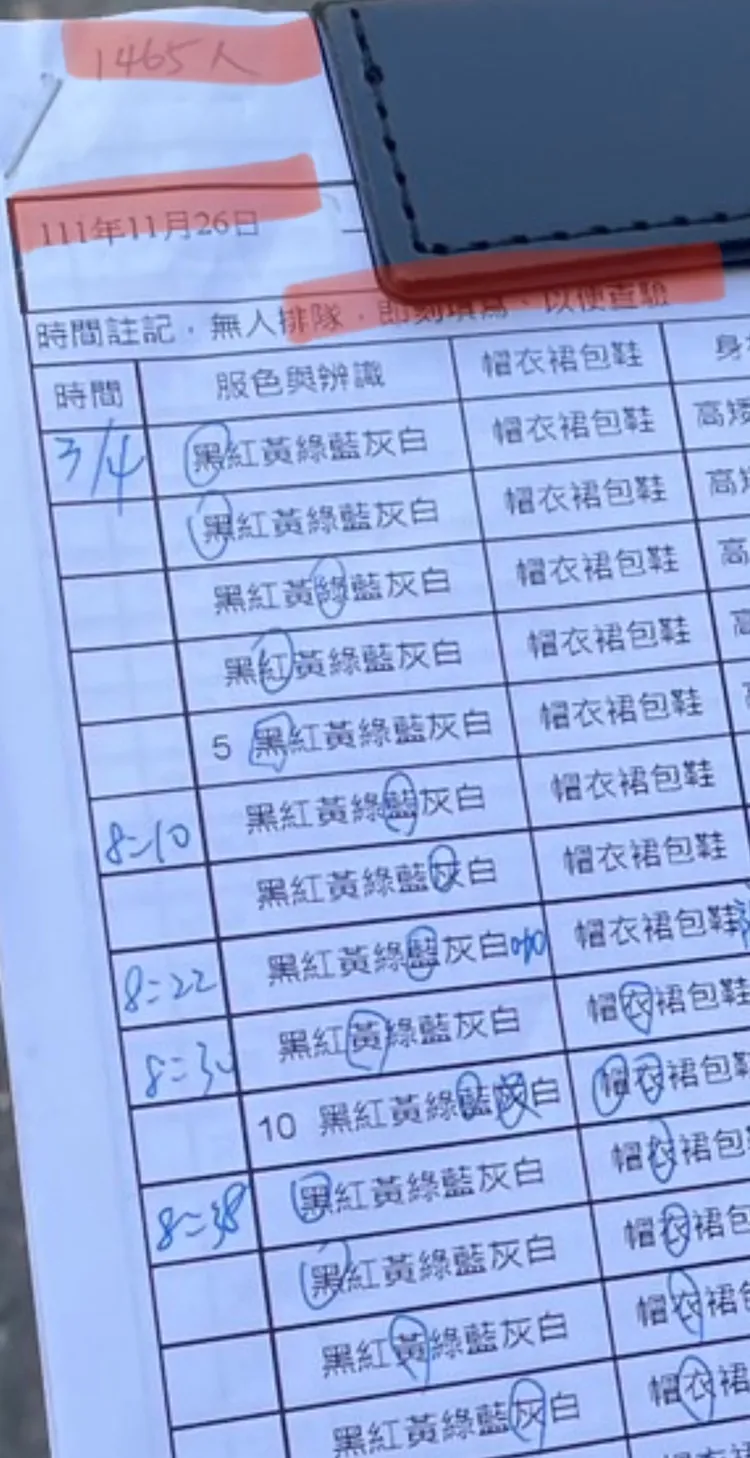 1465人
111年11月26日
時間註記,無人排隊,即刻填寫,以便查驗
時間 服色與辨識 帽衣裙包鞋 身
3/4 黑紅黃綠藍灰白 帽衣裙包鞋 高矮
黑紅黃綠藍灰白 帽衣裙包鞋 高矮
黑紅黃綠藍灰白 帽衣裙包鞋 高
黑紅黃綠藍灰白 帽衣裙包鞋 高
5 黑紅黃綠藍灰白 帽衣裙包鞋
8:10 黑紅黃綠藍灰白 帽衣裙包鞋
黑紅黃綠藍灰白 帽衣裙包鞋
8:22 黑紅黃綠藍灰白 帽衣裙包鞋
8:30 黑紅黃綠藍灰白 帽衣裙包鞋
10 黑紅黃綠藍灰白 帽衣裙包鞋
8:38 黑紅黃綠藍灰白 帽衣裙包
黑紅黃綠藍灰白 帽衣裙包
黑紅黃綠藍灰白 帽衣裙包
黑紅黃綠藍灰白 帽衣裙